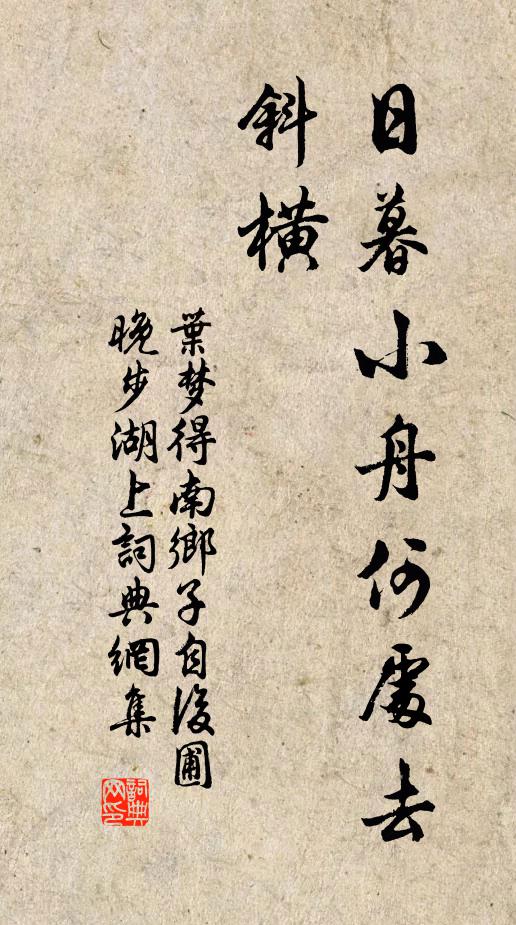 日暮小舟何處去
斜橫
葉梦得南鄉子自後圃
晚步湖上詞典網集
詞典
网印